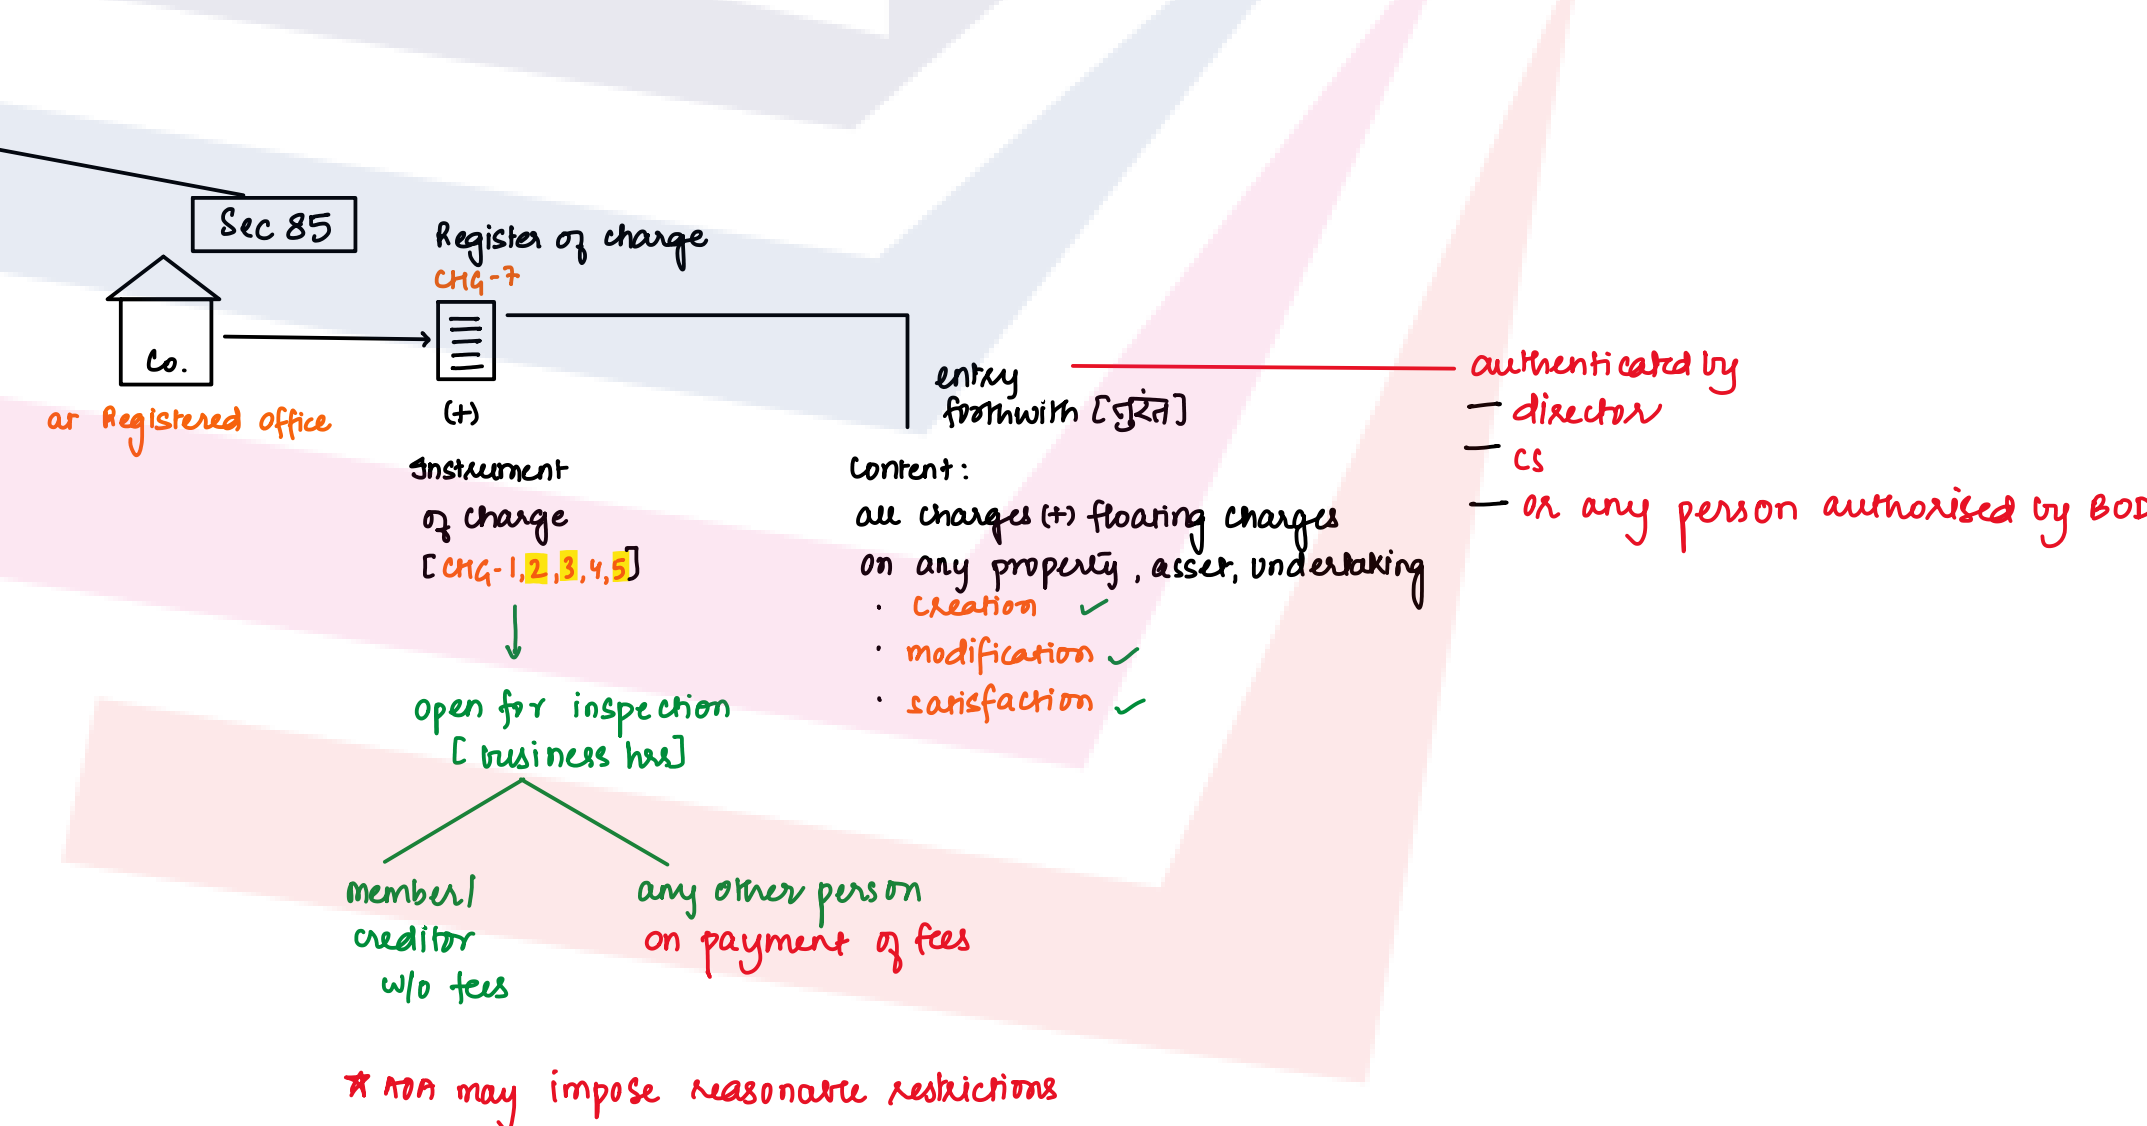 Sec 85
Register of charge
CHG-7
Co.
at Registered office
(+)
Instrument
of charge
[CHG-1,2,3,4,5]
open for inspection
[business hrs]
member/
creditor
w/o fees
any other person
on payment of fees
* AOA may impose reasonable restrictions
entry
forthwith [तुरंत]
Content:
all charges (+) floating charges
on any property, asset, undertaking
· creation ✓
· modification ✓
· satisfaction ✓
authenticated by
— director
— CS
— or any person authorised by BOD